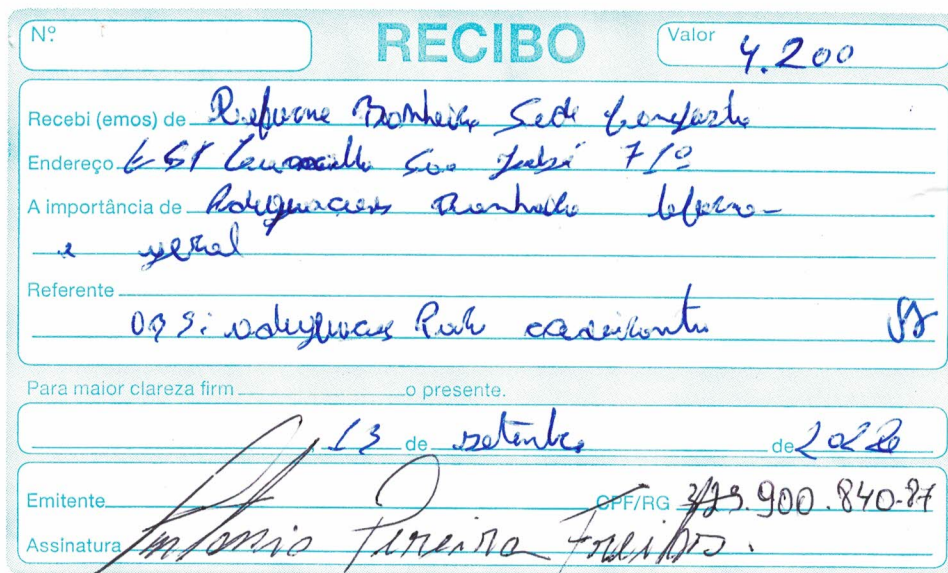 Nº RECIBO Valor 4.200
Recebi (emos) de Reforme Banheiro Sede
Endereço EST São José 710
A importância de Adequacoes Banheiro
e geral
Referente
OBS: adequacoes Para cadeirante
Para maior clareza firm o presente.
13 de setembro de 2022
Emitente CPF/RG .900.840-87
Assinatura Antonio Pereira Freitas.